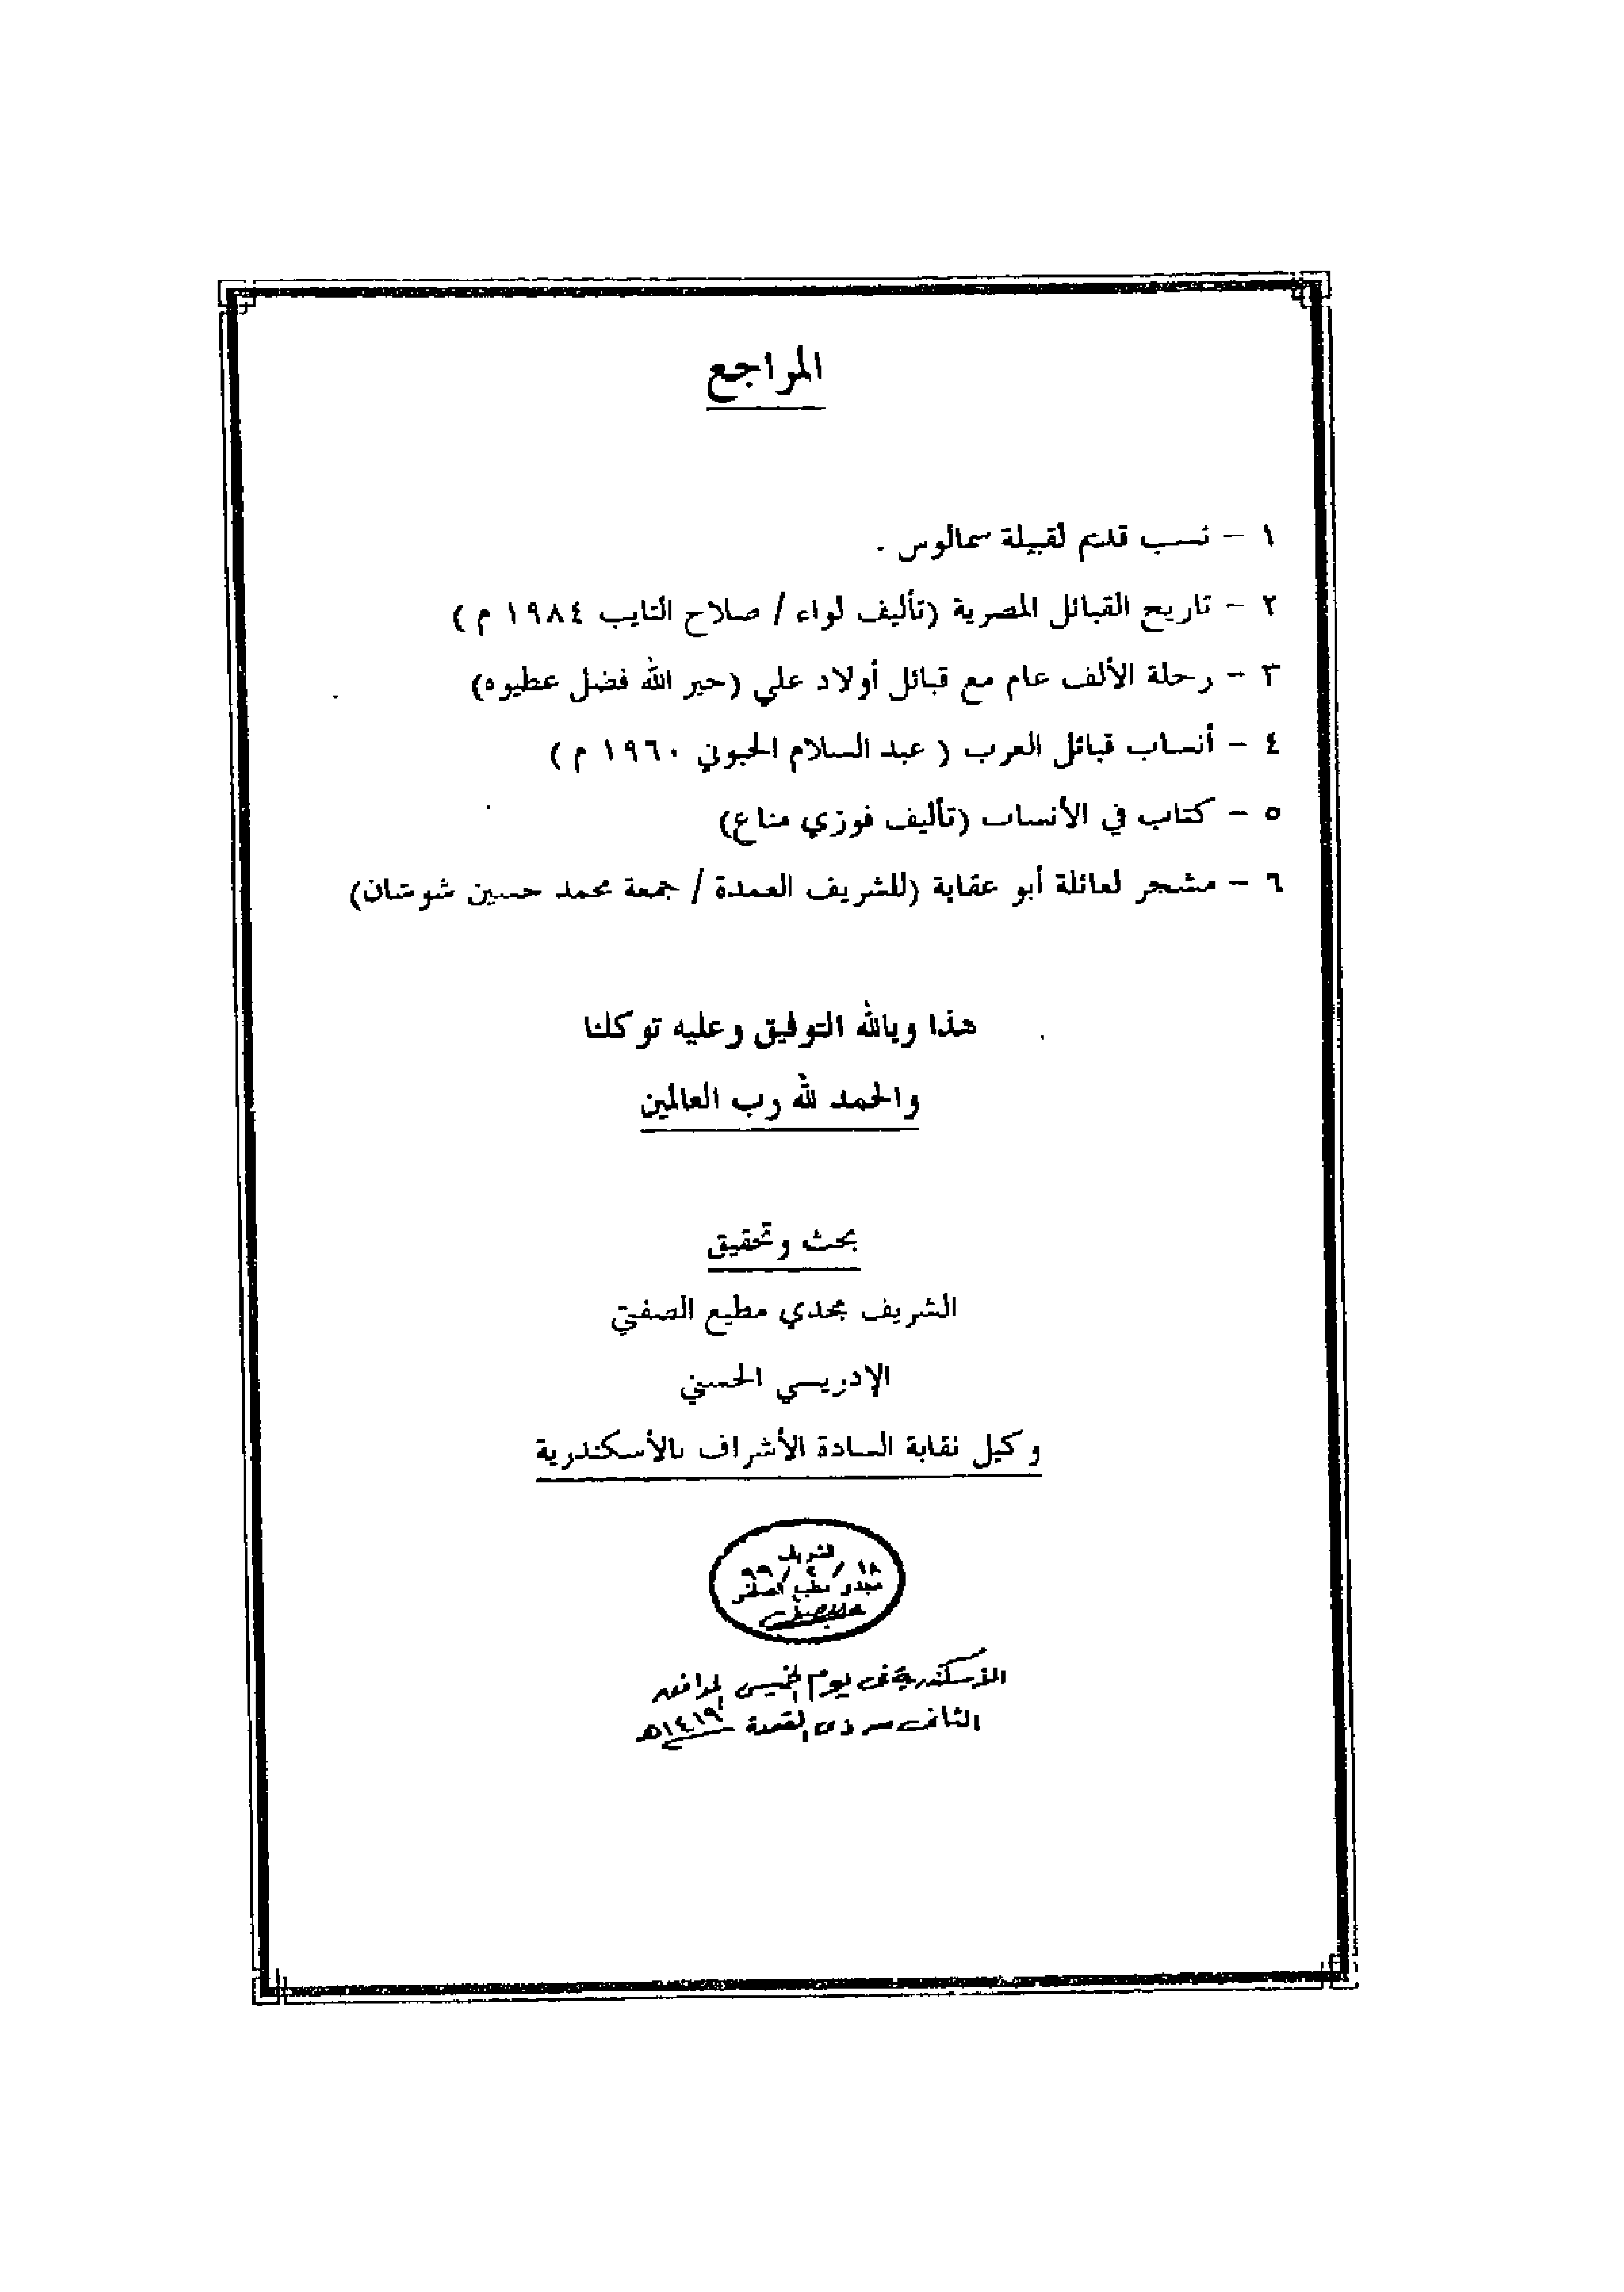 المراجع
١ - نسب قديم لقبيلة سمالوس .
٢ - تاريخ القبائل المصرية (تأليف لواء / صلاح التايب ١٩٨٤ م )
٣ - رحلة الألف عام مع قبائل أولاد علي (خير الله فضل عطيوه)
٤ - أنساب قبائل العرب ( عبد السلام الحبوني ١٩٦٠ م )
٥ - كتاب في الأنساب (تأليف فوزي مناع)
٦ - مشجر لعائلة أبو عقابة (للشريف العمدة / جمعة محمد حسين شوشان)
هذا وبالله التوفيق وعليه توكلنا
والحمد لله رب العالمين
بحث وتحقيق
الشريف مجدي مطيع الصفتي
الإدريسي الحسني
وكيل نقابة السادة الأشراف بالأسكندرية
الشريف
١٨ / ٢ / ٩٩
مجدى مطيع الصفتى
الأسكندرية فى يوم الخميس الموافق
الثانى من ذى القعدة ١٤١٩هـ